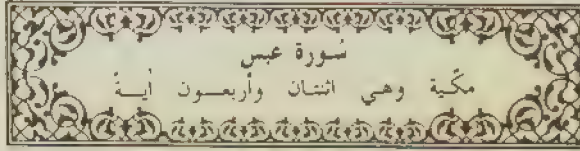 سورة عبس
مكّية وهي اثنتان وأربعون أيةً